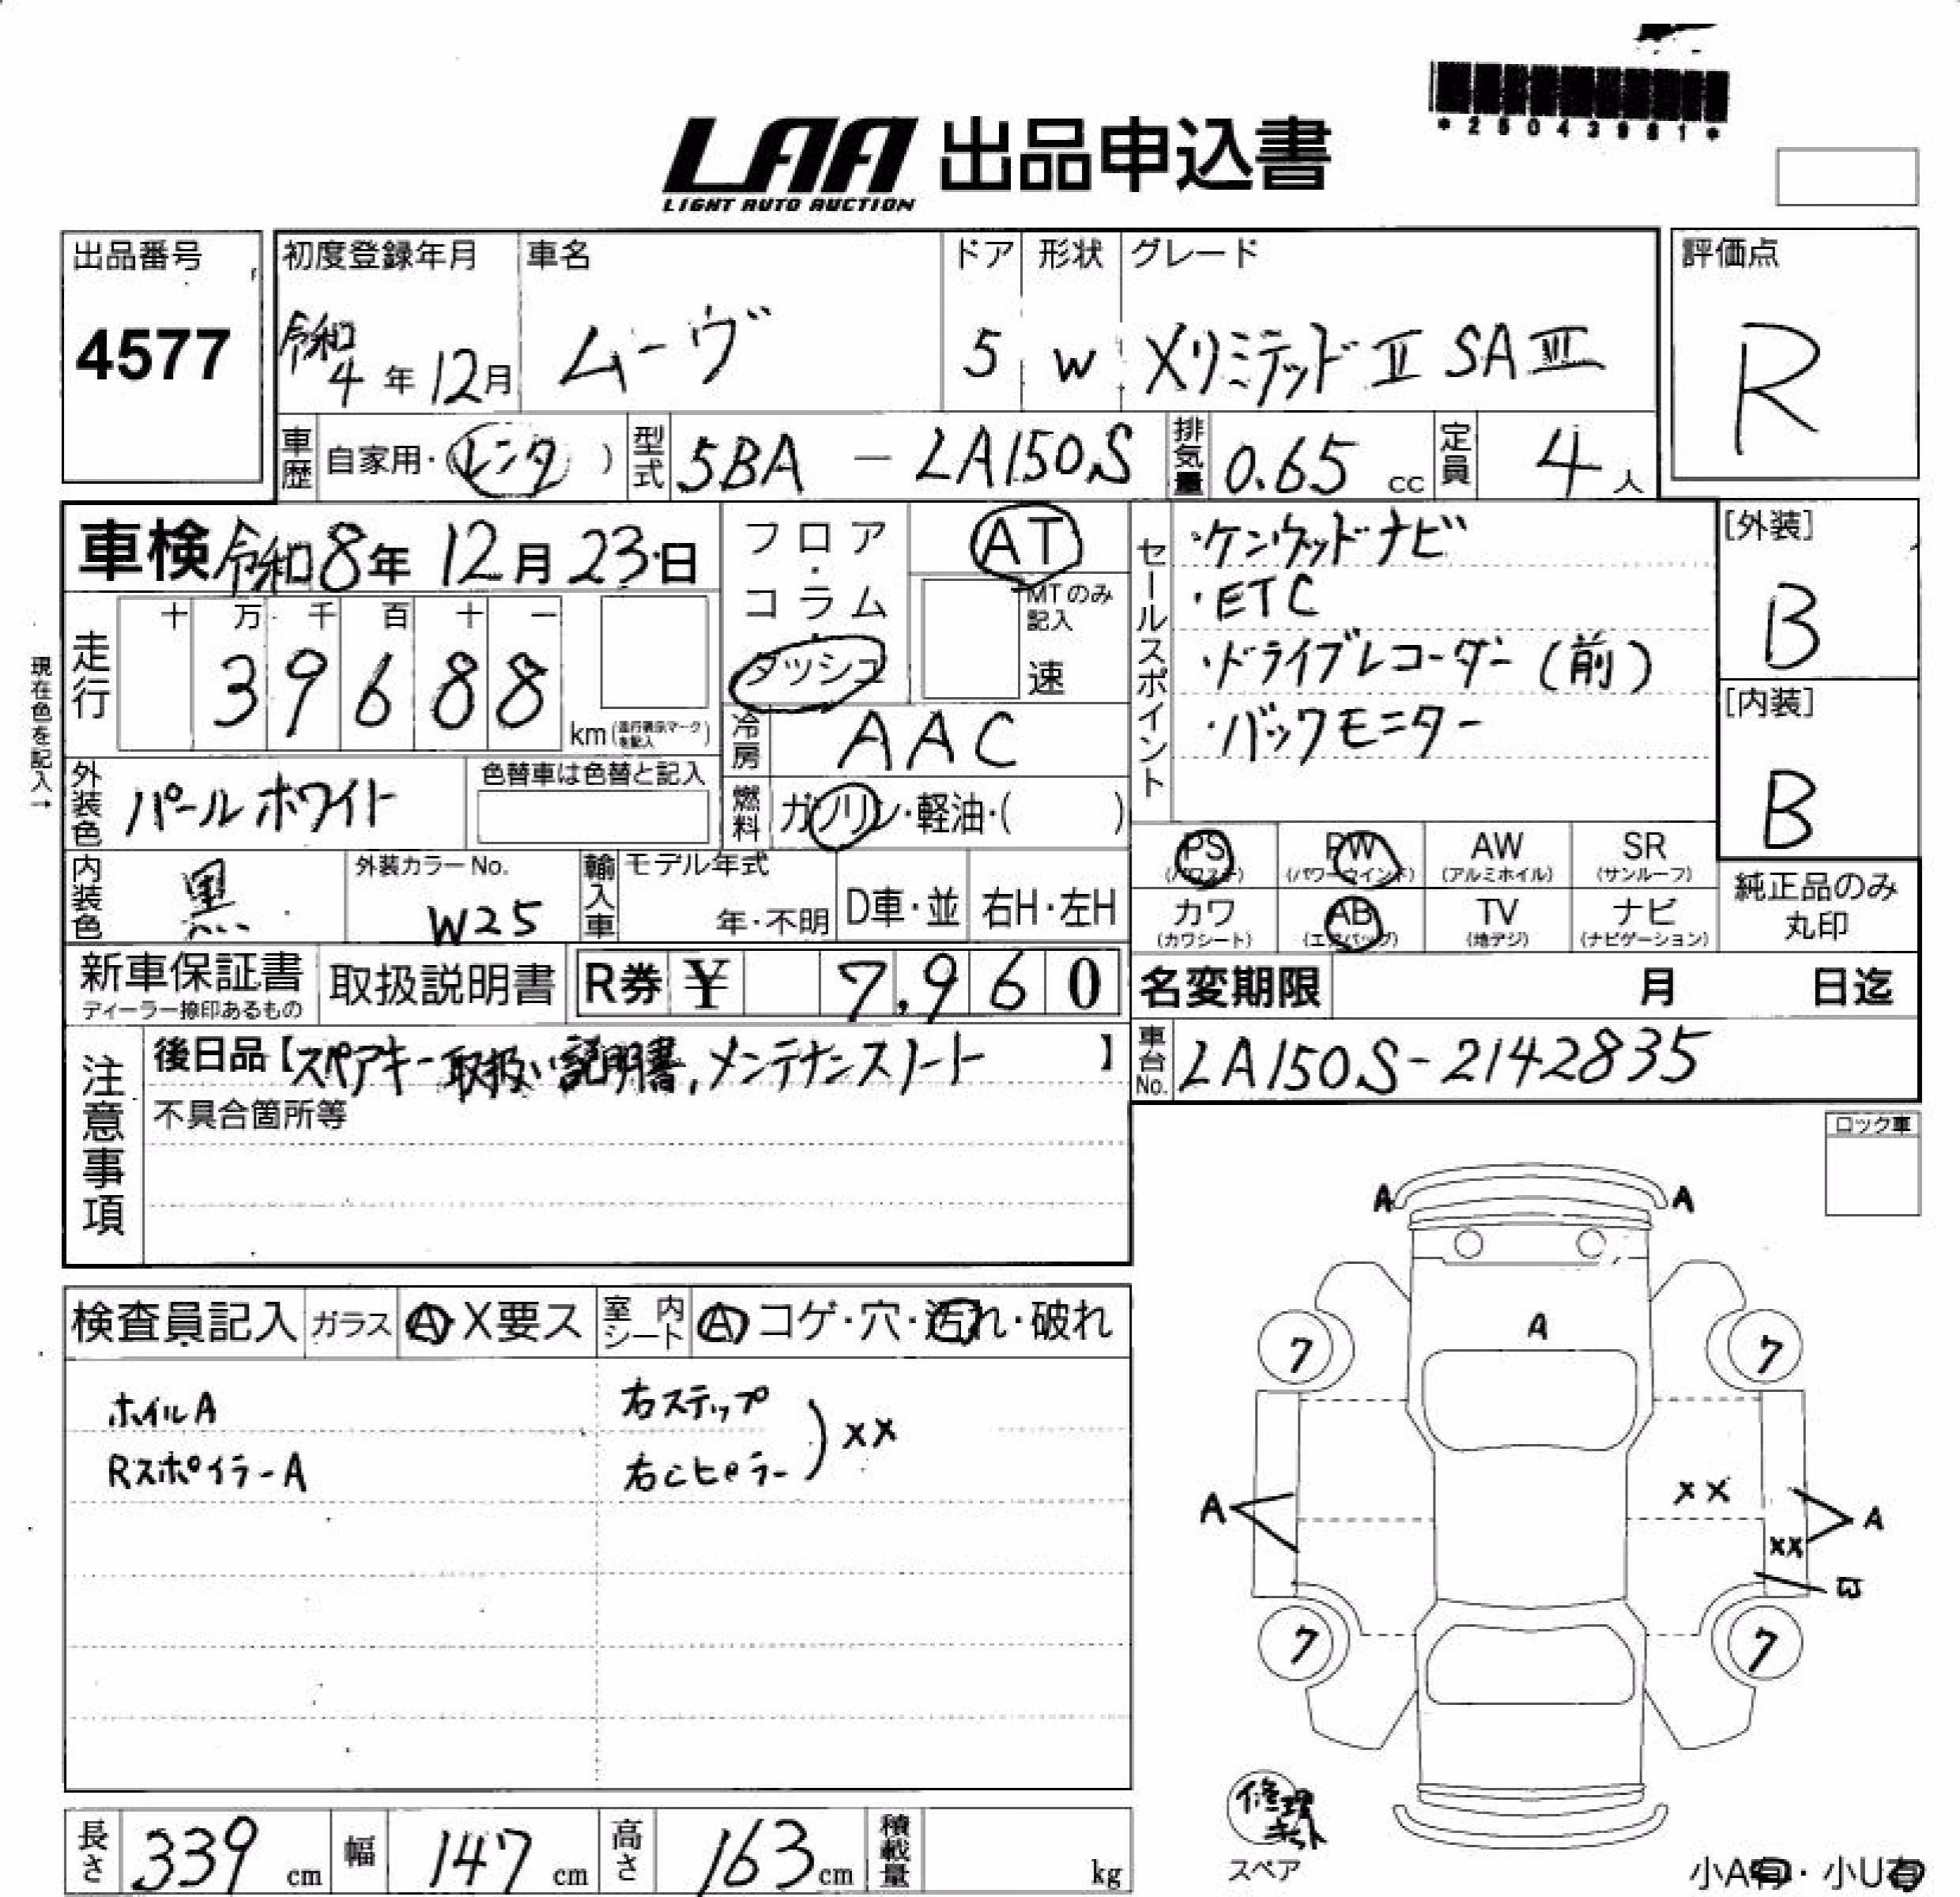 *25043981*
LAA 出品申込書
LIGHT AUTO AUCTION
出品番号
4577
初度登録年月
令和4年12月
車名
ムーヴ
ドア
5
形状
W
グレード
XリミテッドⅡ SAⅢ
評価点
R
車歴 自家用・(レンタ)
型式 5BA - LA150S
排気量 0.65 cc
定員 4人
車検 令和8年12月23日
フロア・コラム・ダッシュ
AT
MTのみ記入
速
セールスポイント
・ケンウッドナビ
・ETC
・ドライブレコーダー(前)
・バックモニター
[外装]
B
[内装]
B
現在色を記入→
走行
十 万 千 百 十 一
3 9 6 8 8
km(走行表示マークを記入)
冷房 AAC
外装色 パールホワイト
色替車は色替と記入
燃料 ガソリン・軽油・( )
内装色 黒
外装カラーNo.
W25
輸入車
モデル年式
年・不明
D車・並
右H・左H
PS (パワステ)
PW (パワーウインド)
AW (アルミホイル)
SR (サンルーフ)
カワ (カワシート)
AB (エアバッグ)
TV (地デジ)
ナビ (ナビゲーション)
純正品のみ丸印
新車保証書
ディーラー捺印あるもの
取扱説明書
R券 ¥ 7,960
名変期限 月 日迄
注意事項
後日品【スペアキー取扱い説明書,メンテナンスノート】
不具合箇所等
車台No. LA150S-2142835
ロック車
検査員記入 ガラス A・X要ス
室内シート A コゲ・穴・汚れ・破れ
ホイルA
RスポイラーA
右ステップ
右Cピラー
)XX
A A
A
7 7
XX
A A
XX
7 7
修理キット
スペア
小A有・小U有
長さ 339 cm
幅 147 cm
高さ 163 cm
積載量 kg